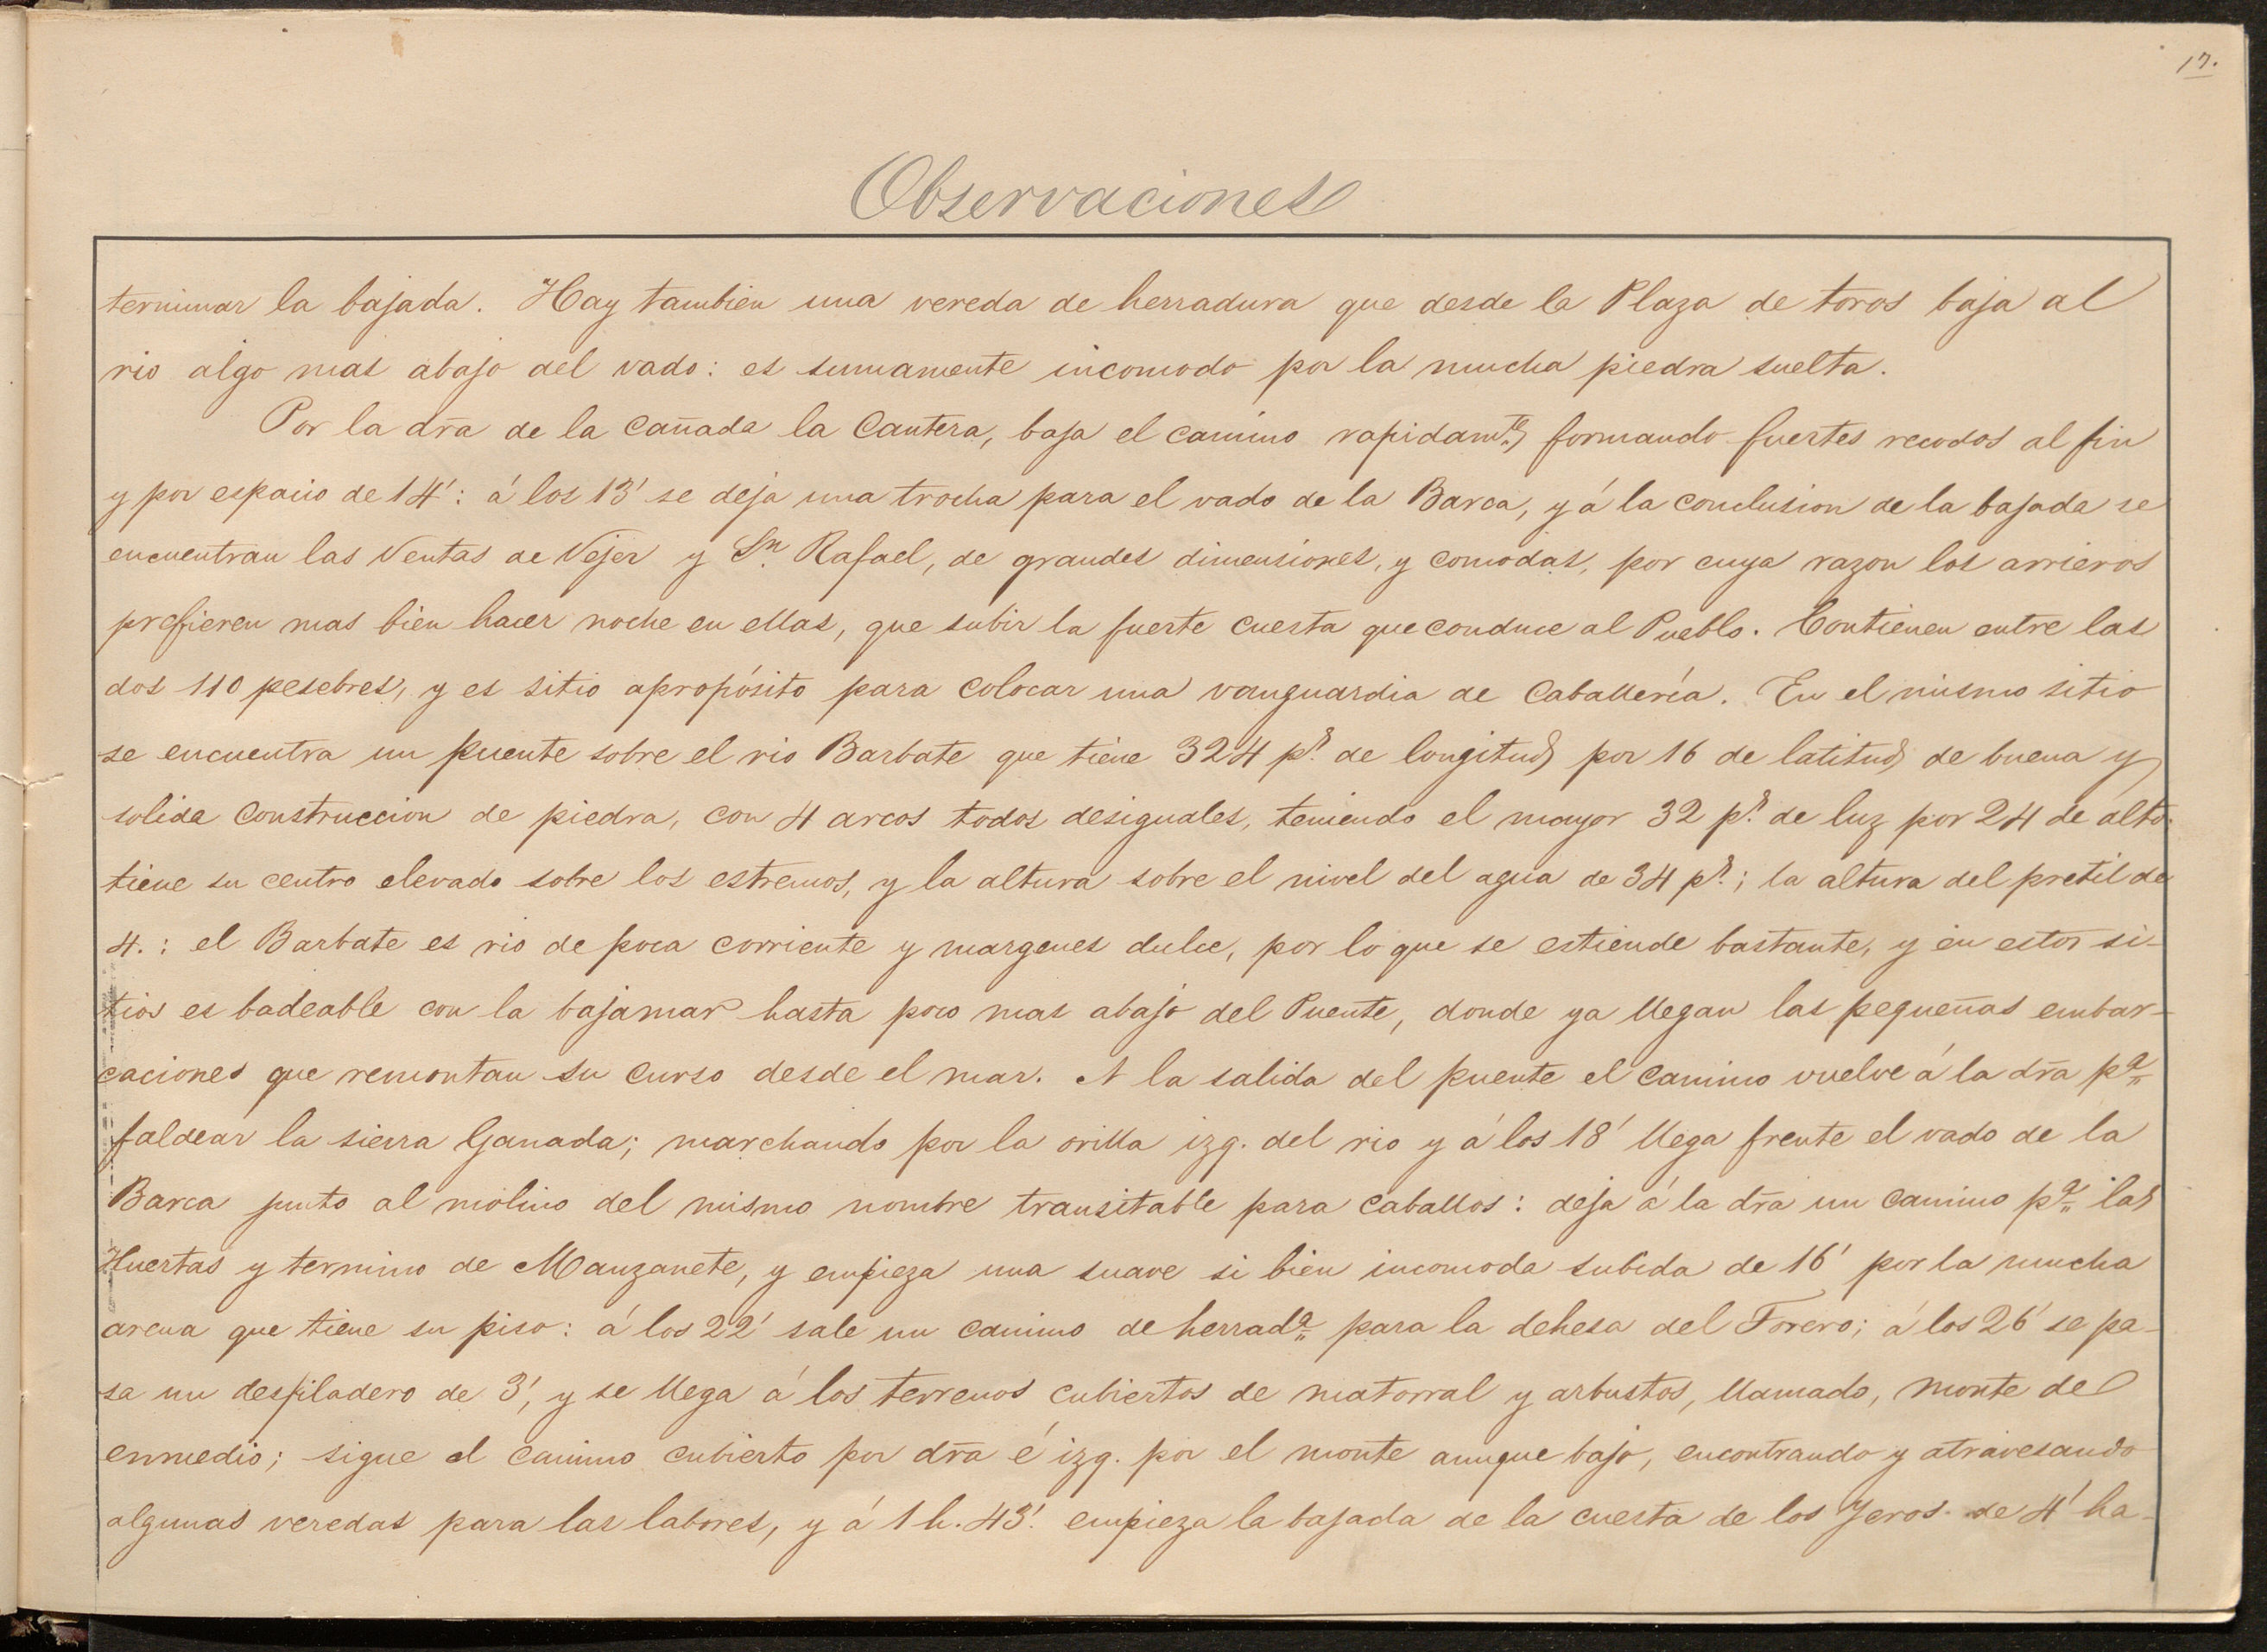 17.
Observaciones
terminar la bajada. Hay tambien una vereda de herradura que desde la Plaza de toros baja al
rio algo mas abajo del vado: es sumamente incomodo por la mucha piedra suelta.
Por la dr̃a de la Cañada la Cantera, baja el camino rapidamte, formando fuertes recodos al fin
y por espacio de 14': á los 13' se deja una trocha para el vado de la Barca, y á la conclusion de la bajada se
encuentran las Ventas de Vejer y Sn. Rafael, de grandes dimensiones, y comodas, por cuya razon los arrieros
prefieren mas bien hacer noche en ellas, que subir la fuerte cuesta que conduce al Pueblo. Contienen entre las
dos 110 pesebres, y es sitio apropósito para colocar una vanguardia de Caballería. En el mismo sitio
se encuentra un puente sobre el rio Barbate que tiene 324 ps. de longitud por 16 de latitud, de buena y
solida construccion de piedra, con 4 arcos todos desiguales, teniendo el mayor 32 ps. de luz por 24 de alto.
tiene su centro elevado sobre los estremos, y la altura sobre el nivel del agua de 34 ps.; la altura del pretil de
4.: el Barbate es rio de poca corriente y margenes dulce, por lo que se estiende bastante, y en estos si-
tios es badeable con la bajamar hasta poco mas abajo del Puente, donde ya llegan las pequeñas embar-
caciones que remontan su curso desde el mar. A la salida del puente el camino vuelve á la dr̃a pa.
faldear la sierra Ganada; marchando por la orilla izq. del rio y á los 18' llega frente el vado de la
Barca junto al molino del mismo nombre transitable para caballos: deja á la dr̃a un camino pa. las
Huertas y termino de Manzanete, y empieza una suave si bien incomoda subida de 16' por la mucha
arena que tiene su piso: á los 22' sale un camino de herrada. para la dehesa del Torero; á los 26' se pa-
sa un desfiladero de 3', y se llega á los terrenos cubiertos de matorral y arbustos, llamado, monte de
enmedio; sigue el camino cubierto por dr̃a é izq. por el monte aunque bajo, encontrando y atravesando
algunas veredas para las labores, y á 1 h. 43'. empieza la bajada de la cuesta de los Yeros de 4' ha-